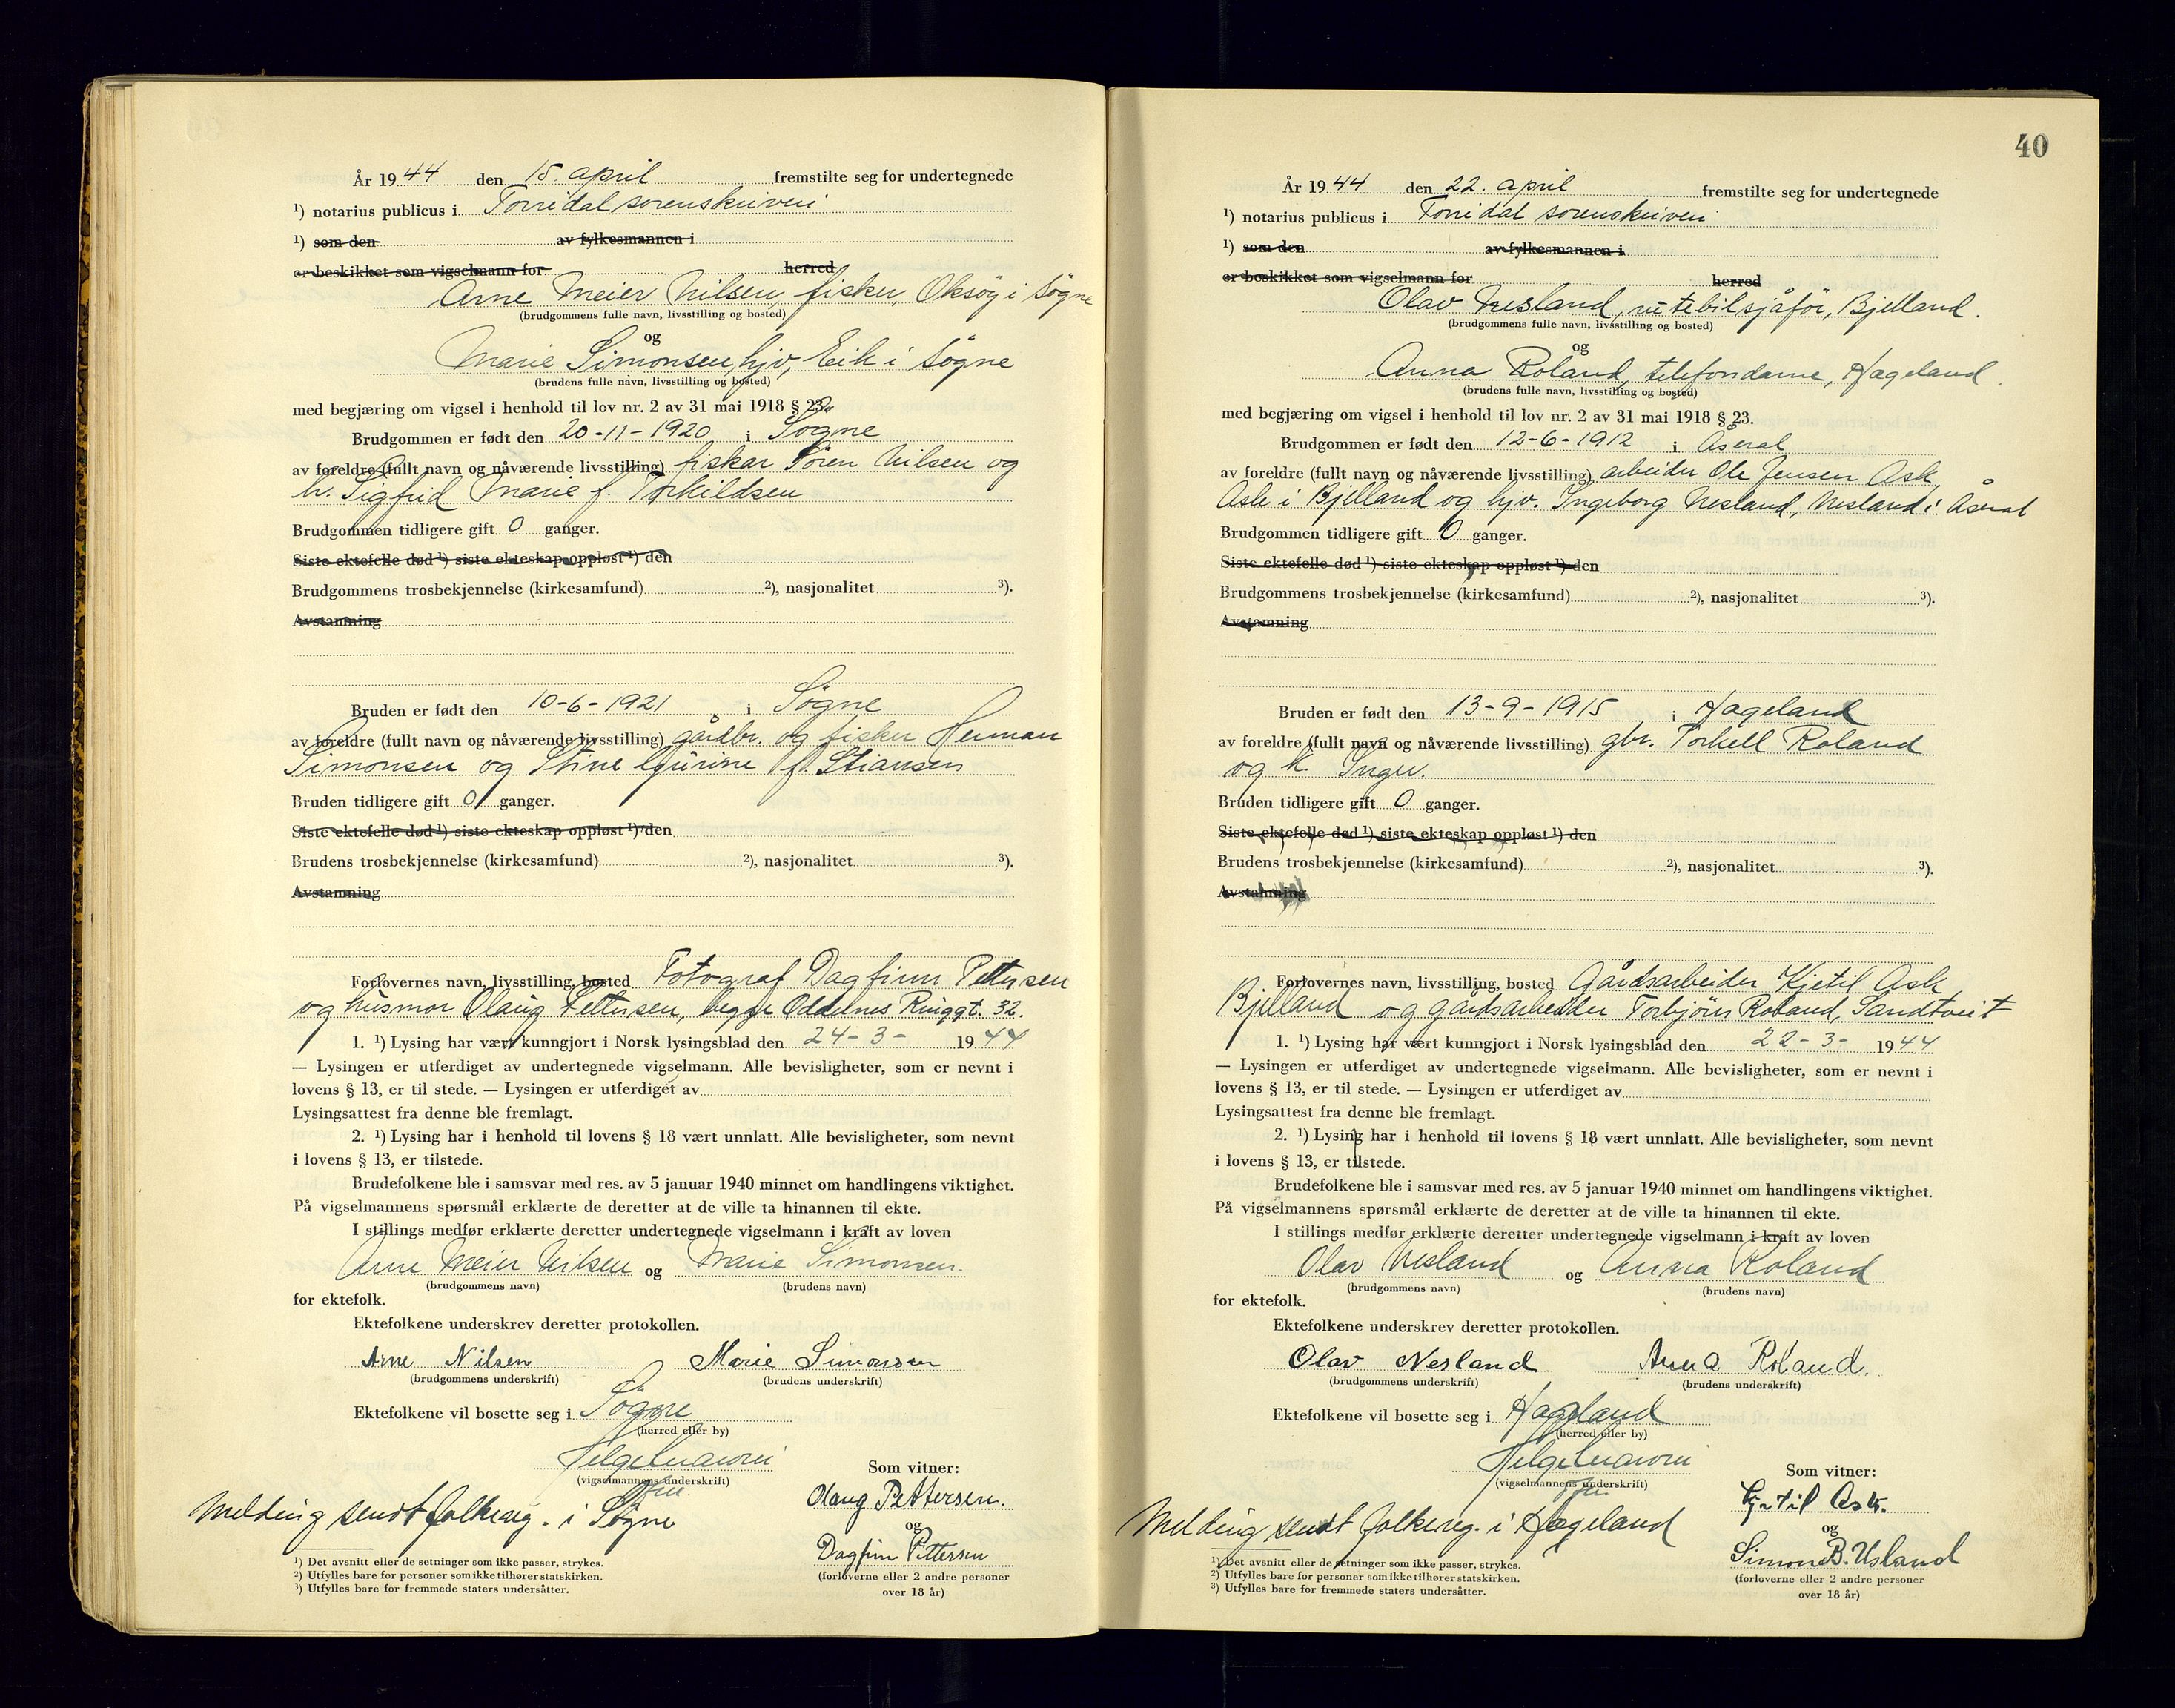 År 1944 den 15. april fremstilte seg for undertegnede
¹) notarius publicus i Torridal sorenskriveri
¹) som den av fylkesmannen i
er beskikket som vigselmann for herred
Arne Meier Nilsen, fisker, Oksøy i Søgne
(brudgommens fulle navn, livsstilling og bosted)
og
Marie Simonsen, hjv, Eik i Søgne
(brudens fulle navn, livsstilling og bosted)
med begjæring om vigsel i henhold til lov nr. 2 av 31 mai 1918 § 23.
Brudgommen er født den 20-11-1920 i Søgne
av foreldre (fullt navn og nåværende livsstilling) fiskar Søren Nilsen og
h. Sigfrid Marie f. Torkildsen
Brudgommen tidligere gift 0 ganger.
Siste ektefelle død ¹) siste ekteskap oppløst ¹) den
Brudgommens trosbekjennelse (kirkesamfund) ²), nasjonalitet ³).
Avstamning
Bruden er født den 10-6-1921 i Søgne
av foreldre (fullt navn og nåværende livsstilling) gårdbr. og fisker Herman
Simonsen og Stine Gurine f. Stiansen
Bruden tidligere gift 0 ganger.
Siste ektefelle død ¹) siste ekteskap oppløst ¹) den
Brudens trosbekjennelse (kirkesamfund) ²), nasjonalitet ³).
Avstamning
Forlovernes navn, livsstilling, bosted Fotograf Dagfinn Pettersen
og husmor Olaug Pettersen, begge Oddernes Ringgt. 32.
1. ¹) Lysing har vært kunngjort i Norsk lysingsblad den 24-3- 1944
— Lysingen er utferdiget av undertegnede vigselmann. Alle bevisligheter, som er nevnt i
lovens § 13, er til stede. — Lysingen er utferdiget av
Lysingsattest fra denne ble fremlagt.
2. ¹) Lysing har i henhold til lovens § 18 vært unnlatt. Alle bevisligheter, som nevnt
i lovens § 13, er tilstede.
Brudefolkene ble i samsvar med res. av 5 januar 1940 minnet om handlingens viktighet.
På vigselmannens spørsmål erklærte de deretter at de ville ta hinannen til ekte.
I stillings medfør erklærte deretter undertegnede vigselmann i kraft av loven
Arne Meier Nilsen og Marie Simonsen.
(brudgommens navn) (brudens navn)
for ektefolk.
Ektefolkene underskrev deretter protokollen.
Arne Nilsen Marie Simonsen
(brudgommens underskrift) (brudens underskrift)
Ektefolkene vil bosette seg i Søgne
(herred eller by)
(vigselmannens underskrift)
Som vitner:
Olaug Pettersen.
og
Dagfinn Pettersen
(forloverne eller 2 andre personer
over 18 år)
Melding sendt folkereg. i Søgne
¹) Det avsnitt eller de setninger som ikke passer, strykes.
²) Utfylles bare for personer som ikke tilhører statskirken.
³) Utfylles bare for fremmede staters undersåtter.
40
År 1944 den 22. april fremstilte seg for undertegnede
¹) notarius publicus i Torridal sorenskriveri
¹) som den av fylkesmannen i
er beskikket som vigselmann for herred
Olav Nesland, rutebilsjåfør, Bjelland.
(brudgommens fulle navn, livsstilling og bosted)
og
Anna Roland, telefondame, Hægeland.
(brudens fulle navn, livsstilling og bosted)
med begjæring om vigsel i henhold til lov nr. 2 av 31 mai 1918 § 23.
Brudgommen er født den 12-6-1912 i Åseral
av foreldre (fullt navn og nåværende livsstilling) arbeider Ole Jensen Ask,
Ask i Bjelland og hjv. Ingeborg Nesland, Nesland i Åseral
Brudgommen tidligere gift 0 ganger.
Siste ektefelle død ¹) siste ekteskap oppløst ¹) den
Brudgommens trosbekjennelse (kirkesamfund) ²), nasjonalitet ³).
Avstamning
Bruden er født den 13-9-1915 i Hægeland
av foreldre (fullt navn og nåværende livsstilling) gbr. Torkell Roland
og k. Inger.
Bruden tidligere gift 0 ganger.
Siste ektefelle død ¹) siste ekteskap oppløst ¹) den
Brudens trosbekjennelse (kirkesamfund) ²), nasjonalitet ³).
Avstamning
Forlovernes navn, livsstilling, bosted Gårdsarbeider Kjetil Ask,
Bjelland og gårdsarbeider Torbjørn Roland, Sandtveit
1. ¹) Lysing har vært kunngjort i Norsk lysingsblad den 22-3- 1944
— Lysingen er utferdiget av undertegnede vigselmann. Alle bevisligheter, som er nevnt i
lovens § 13, er til stede. — Lysingen er utferdiget av
Lysingsattest fra denne ble fremlagt.
2. ¹) Lysing har i henhold til lovens § 18 vært unnlatt. Alle bevisligheter, som nevnt
i lovens § 13, er tilstede.
Brudefolkene ble i samsvar med res. av 5 januar 1940 minnet om handlingens viktighet.
På vigselmannens spørsmål erklærte de deretter at de ville ta hinannen til ekte.
I stillings medfør erklærte deretter undertegnede vigselmann i kraft av loven
Olav Nesland og Anna Roland
(brudgommens navn) (brudens navn)
for ektefolk.
Ektefolkene underskrev deretter protokollen.
Olav Nesland Anna Roland.
(brudgommens underskrift) (brudens underskrift)
Ektefolkene vil bosette seg i Hægeland
(herred eller by)
(vigselmannens underskrift)
Som vitner:
Kjetil Ask.
og
Simon B. Usland
(forloverne eller 2 andre personer
over 18 år)
Melding sendt folkereg. i Hægeland
¹) Det avsnitt eller de setninger som ikke passer, strykes.
²) Utfylles bare for personer som ikke tilhører statskirken.
³) Utfylles bare for fremmede staters undersåtter.